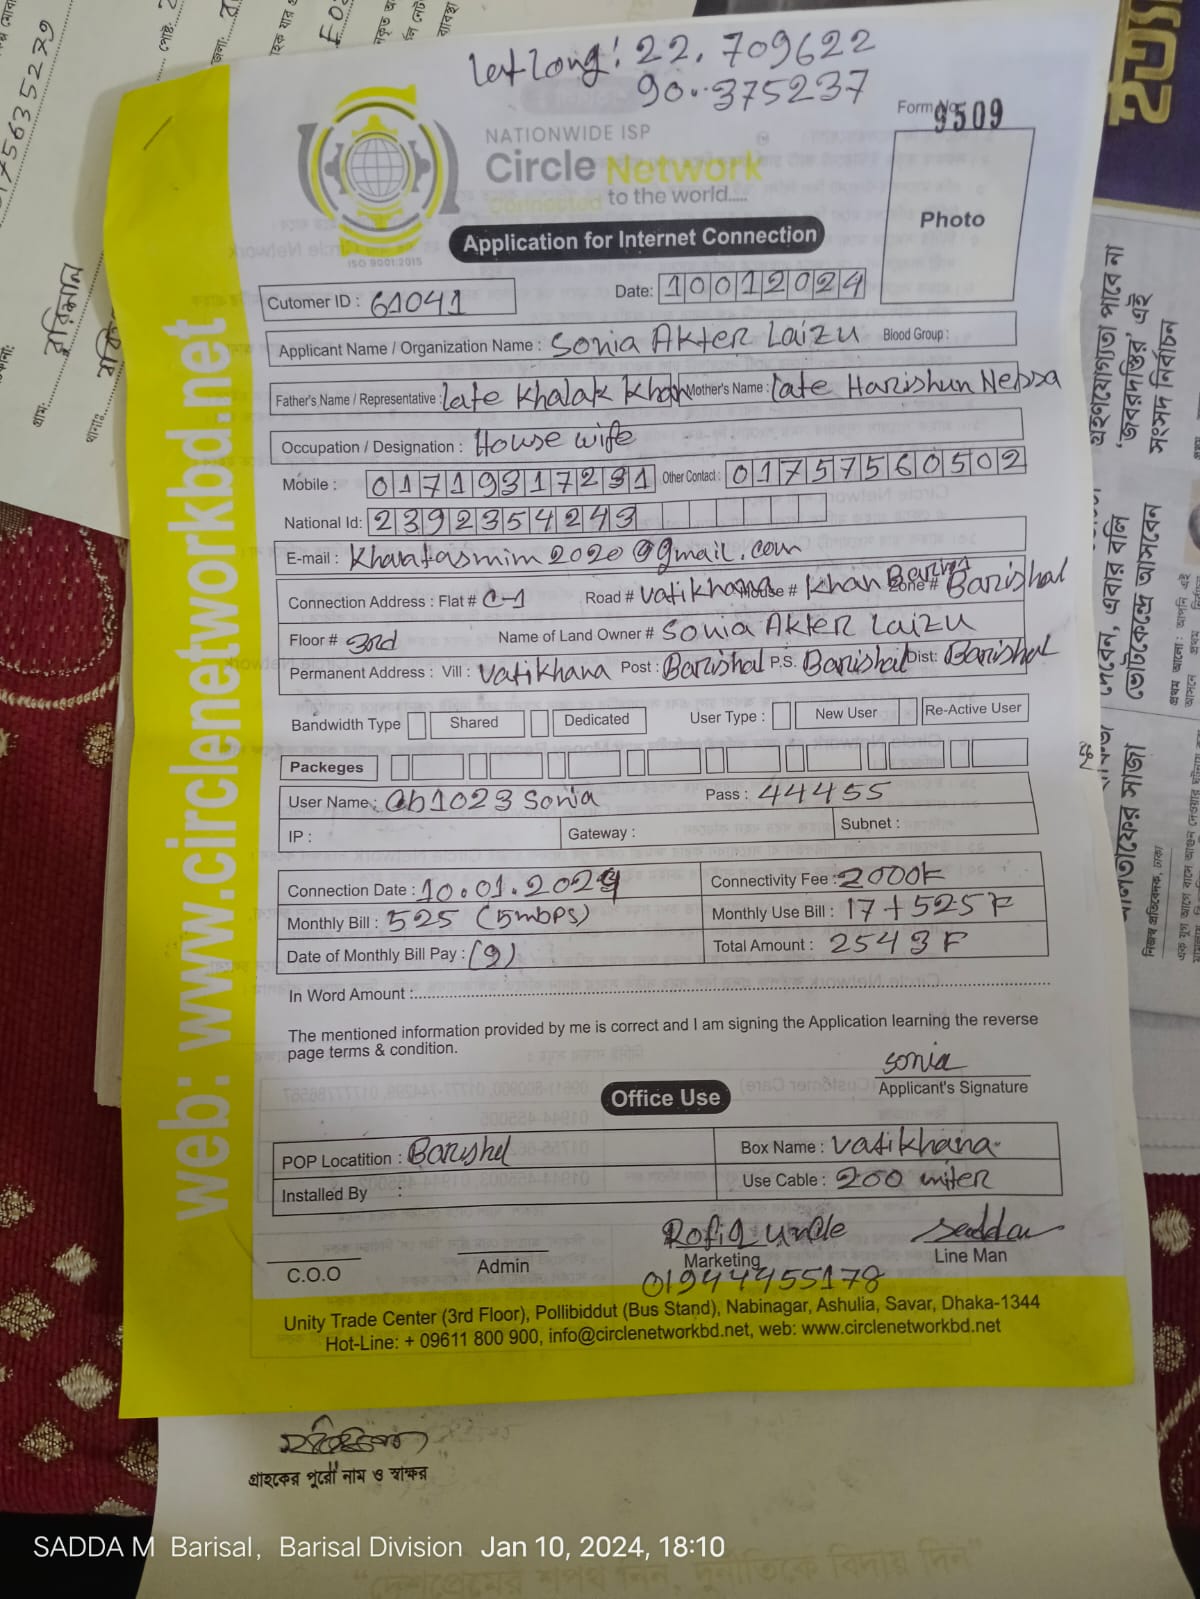 lat long: 22.709622
90.375237
Form No. 9509
NATIONWIDE ISP
Circle Network
Connected to the world.....
ISO 9001:2015
Photo
Application for Internet Connection
Cutomer ID : 61041
Date: 10012024
Applicant Name / Organization Name : Sonia Akter Laizu Blood Group :
Father's Name / Representative : late Khalak Khan Mother's Name : late Harishun Nessa
Occupation / Designation : House wife
Mobile : 01719317231 Other Contact : 01757560502
National Id: 2392354243
E-mail : khantasmim2020@gmail.com
Connection Address : Flat # C-1 Road # vatikhana House # Khan Barishal Zone # Barishal
Floor # 3rd Name of Land Owner # Sonia Akter Laizu
Permanent Address : Vill : Vatikhana Post : Barishal P.S. Barishal Dist: Barishal
Bandwidth Type Shared Dedicated User Type : New User Re-Active User
Packeges
User Name : cb1023 Sonia Pass : 44455
IP : Gateway : Subnet :
Connection Date : 10.01.2024 Connectivity Fee : 2000F
Monthly Bill : 525 (5mbps) Monthly Use Bill : 17+525F
Date of Monthly Bill Pay : (9) Total Amount : 2543F
In Word Amount :
The mentioned information provided by me is correct and I am signing the Application learning the reverse
page terms & condition.
sonia
Applicant's Signature
Office Use
POP Locatition : Barishal Box Name : Vatikhana
Installed By : Use Cable : 200 miter
Rofiq uncle
C.O.O Admin Marketing Line Man
01944455178
Unity Trade Center (3rd Floor), Pollibiddut (Bus Stand), Nabinagar, Ashulia, Savar, Dhaka-1344
Hot-Line: + 09611 800 900, info@circlenetworkbd.net, web: www.circlenetworkbd.net
web: www.circlenetworkbd.net
গ্রাহকের পুরো নাম ও স্বাক্ষর
SADDA M Barisal, Barisal Division Jan 10, 2024, 18:10
"দেশপ্রেমের শপথ নিন, দুর্নীতিকে বিদায় দিন"
গ্রাম:
বরিশাল
থানাঃ
গ্রহণযোগ্যতা পাবে না
'জবরদস্তির' এই
সংসদ নির্বাচন
ভোটকেন্দ্রে আসবেন